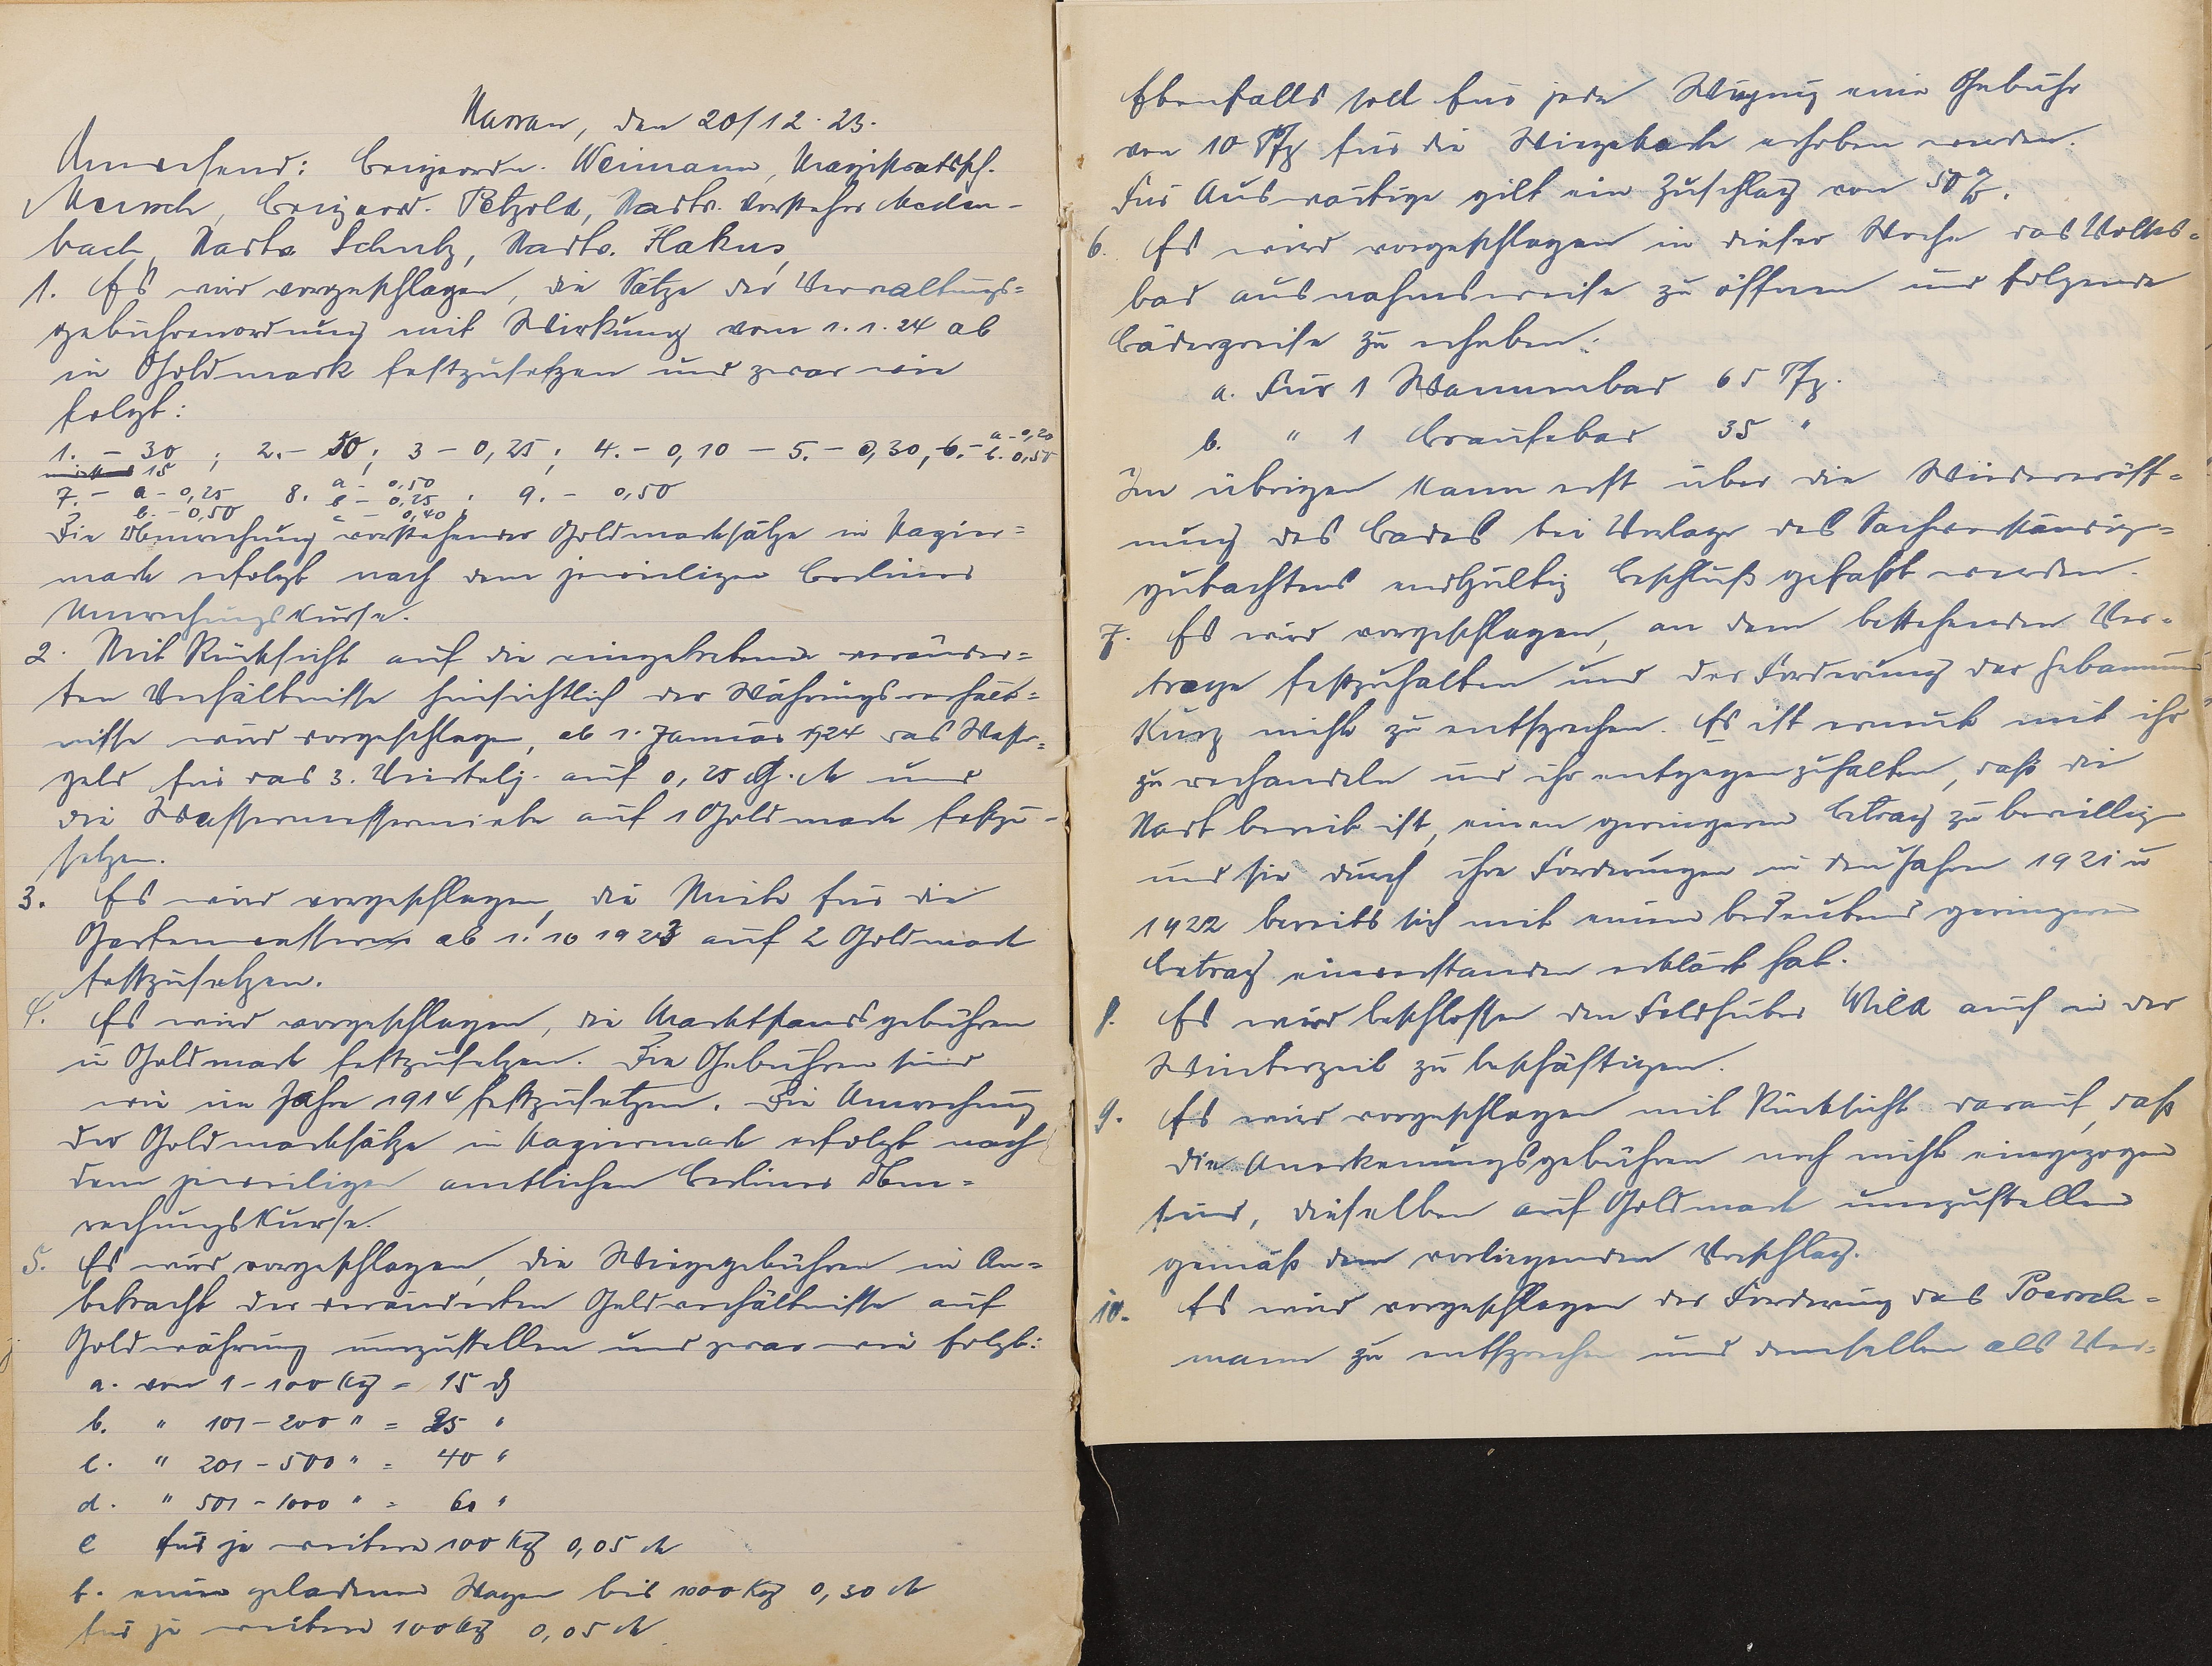 Nassau, den 20/12.23.
Anwesend: Beigeordn. Weimann, Magistratssch.
Meusch, Beigeord. Petzold, Stadtv. Vorsteher Meden-
bach, Stadtv. Schulz, Stadtv. Hakus,
1. Es wird vorgeschlagen, die Sätze der Verwaltungs=
gebührenordnung mit Wirkung vom 1.1.24 ab
in Goldmark festzusetzen und zwar wie
folgt:
1. - 30 ; 2. - 50 ; 3 - 0,25 ; 4. - 0,10 - 5. - 0,30, 6. - a - 0,20 b. 0,50
15
7. - a - 0,25 b. - 0,50 8. a - 0,50 b - 0,25 c - 0,40 ; 9. - 0,50
Die Umrechnung vorstehender Goldmarksätze in Papier=
mark erfolgt nach dem jeweiligen Berliner
Umrechnungskurse.
2. Mit Rücksicht auf die eingetretene veränder=
ten Verhältnisse hinsichtlich der Währungsverhält=
nisse wird vorgeschlagen, ab 1. Januar 1924 das Wasser=
geld für das 3. Viertelj. auf 0,25 G.M und
die Wassermessermiete auf 1 Goldmark festzu-
setzen.
3. Es wird vorgeschlagen, die Miete für die
Gartenwasser ab 1.10 1923 auf 2 Goldmark
festzusetzen.
4. Es wird vorgeschlagen, die Marktstandsgebühren
in Goldmark festzusetzen. Die Gebühren sind
wie im Jahre 1914 festzusetzen. Die Umrechnung
der Goldmarksätze in Papiermark erfolgt nach
dem jeweiligen amtlichen Berliner Um=
rechnungskurse.
5. Es wird vorgeschlagen, die Wiegegebühren in An=
betracht der veränderten Geldverhältnisse auf
Goldwährung umzustellen und zwar wie folgt:
a. von 1 - 100 Kg = 15 ₰
b. " 101 - 200 " = 25 "
c. " 201 - 500 " = 40 "
d. " 501 - 1000 " = 60 "
e für je weitere 100 Kg 0,05 M
f. einen geladenen Wagen bis 1000 Kg 0,30 M
für je weitere 100 Kg 0,05 M
Ebenfalls soll für jede Wiegung eine Gebühr
von 10 Pfg für die Wiegekarte erhoben werden.
Für Auswärtige gilt ein Zuschlag von 50 %.
6. Es wird vorgeschlagen in dieser Woche das Volks=
bad ausnahmsweise zu öffnen und folgende
Bäderpreise zu erheben:
a. Für 1 Wannenbad 65 Pfg.
b. " 1 Brausebad 35 "
Im übrigen kann erst über die Wiedereröff=
nung des Bades bei Vorlage des Sachverständig=
gutachtens endgültig Beschluß gefaßt werden.
7. Es wird vorgeschlagen, an dem bestehenden Ver=
trage festzuhalten und der Forderung der Hebamme
Kurz nicht zu entsprechen. Es ist erneut mit ihr
zu verhandeln und ihr entgegenzuhalten, daß die
Stadt bereit ist, einen geringeren Betrag zu bewilligen
und sie durch ihre Forderungen in den Jahren 1921 u
1922 bereits sich mit einem bedeutend geringeren
Betrag einverstanden erklärt hat.
8. Es wird beschlossen den Feldhüter Wild auch in der
Winterzeit zu beschäftigen.
9. Es wird vorgeschlagen mit Rücksicht darauf, daß
die Anerkennungsgebühren noch nicht eingezogen
sind, dieselben auf Goldmark umzustellen
gemäß dem vorliegenden Vorschlag.
10. Es wird vorgeschlagen der Forderung des
mann zu entsprechen und demselben als Ver=